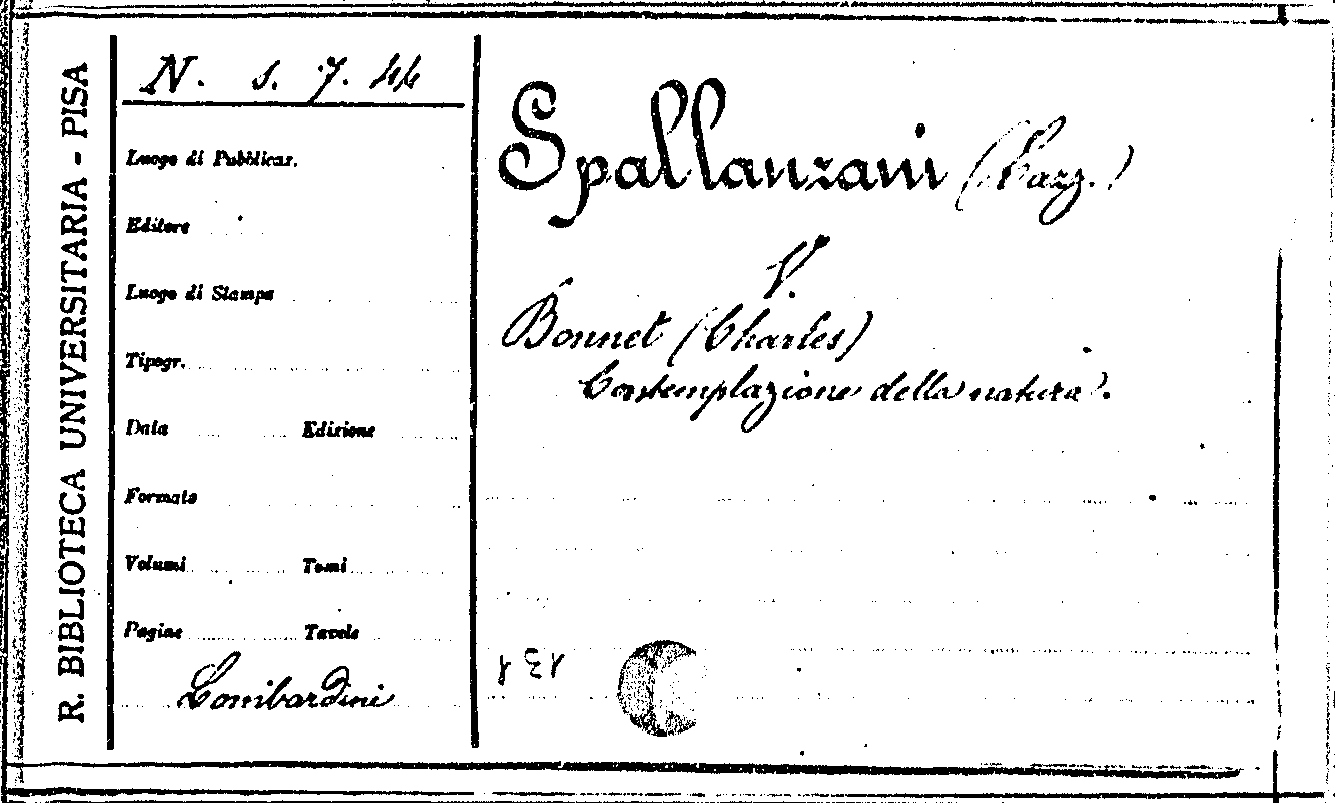 R. BIBLIOTECA UNIVERSITARIA - PISA
N. s. 7. 44
Luogo di Pubblicaz.
Editore
Luogo di Stampa
Tipogr.
Data Edizione
Formato
Volumi Tomi
Pagine Tavole
Lombardini
Spallanzani (Lazz.)
V.
Bonnet (Charles)
Contemplazione della natura.